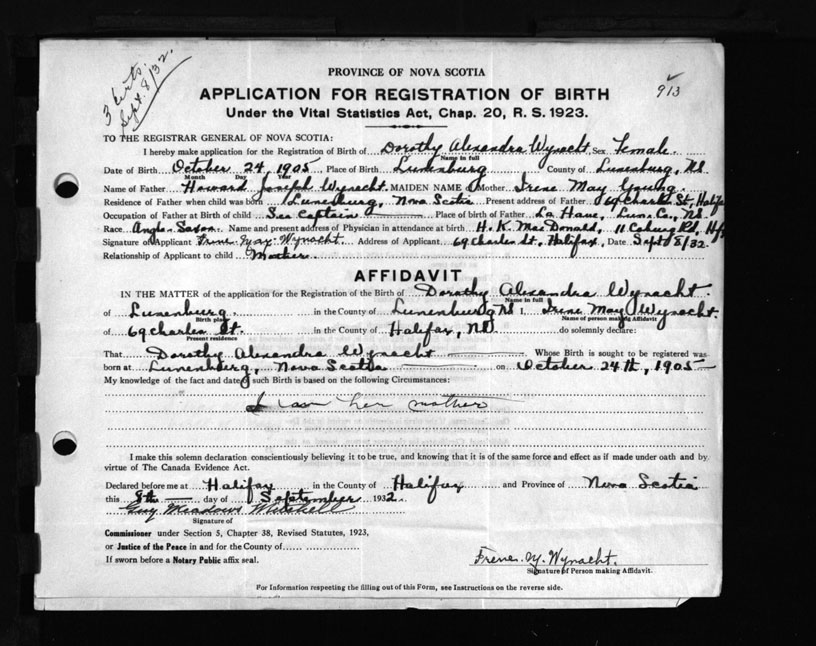 3 certs.
Sept. 8/32.
913
PROVINCE OF NOVA SCOTIA
APPLICATION FOR REGISTRATION OF BIRTH
Under the Vital Statistics Act, Chap. 20, R. S. 1923.
TO THE REGISTRAR GENERAL OF NOVA SCOTIA:
I hereby make application for the Registration of Birth of Dorothy Alexandra Wynacht Sex Female.
Name in full
Date of Birth October 24, 1905 Place of Birth Lunenburg County of Lunenburg, NS
Month Day Year
Name of Father Howard Joseph Wynacht. MAIDEN NAME of Mother Irene May Young.
Residence of Father when child was born Lunenburg, Nova Scotia Present address of Father 69 Charles St, Halifa
Occupation of Father at Birth of child Sea Captain Place of birth of Father La Have, Lun. Co., NS.
Race Anglo-Saxon. Name and present address of Physician in attendance at birth H. K. MacDonald, 11 Coburg Rd, Hfx
Signature of Applicant Irene May Wynacht Address of Applicant 69 Charles St., Halifax, Date Sept 8/32.
Relationship of Applicant to child Mother.
AFFIDAVIT
IN THE MATTER of the application for the Registration of the Birth of Dorothy Alexandra Wynacht.
Name in full
of Lunenburg, in the County of Lunenburg NS I, Irene May Wynacht.
Birth place Name of person making Affidavit
of 69 Charles St. in the County of Halifax, NS do solemnly declare:
Present residence
That Dorothy Alexandra Wynacht Whose Birth is sought to be registered was
born at Lunenburg, Nova Scotia on October 24th, 1905
My knowledge of the fact and date of such Birth is based on the following Circumstances:
I am her mother
I make this solemn declaration conscientiously believing it to be true, and knowing that it is of the same force and effect as if made under oath and by
virtue of The Canada Evidence Act.
Declared before me at Halifax in the County of Halifax and Province of Nova Scotia
this 8th day of September 1932.
Guy Meadows Mitchell
Signature of
Commissioner under Section 5, Chapter 38, Revised Statutes, 1923,
or Justice of the Peace in and for the County of
If sworn before a Notary Public affix seal.
Irene. M. Wynacht.
Signature of Person making Affidavit.
For Information respecting the filling out of this Form, see Instructions on the reverse side.